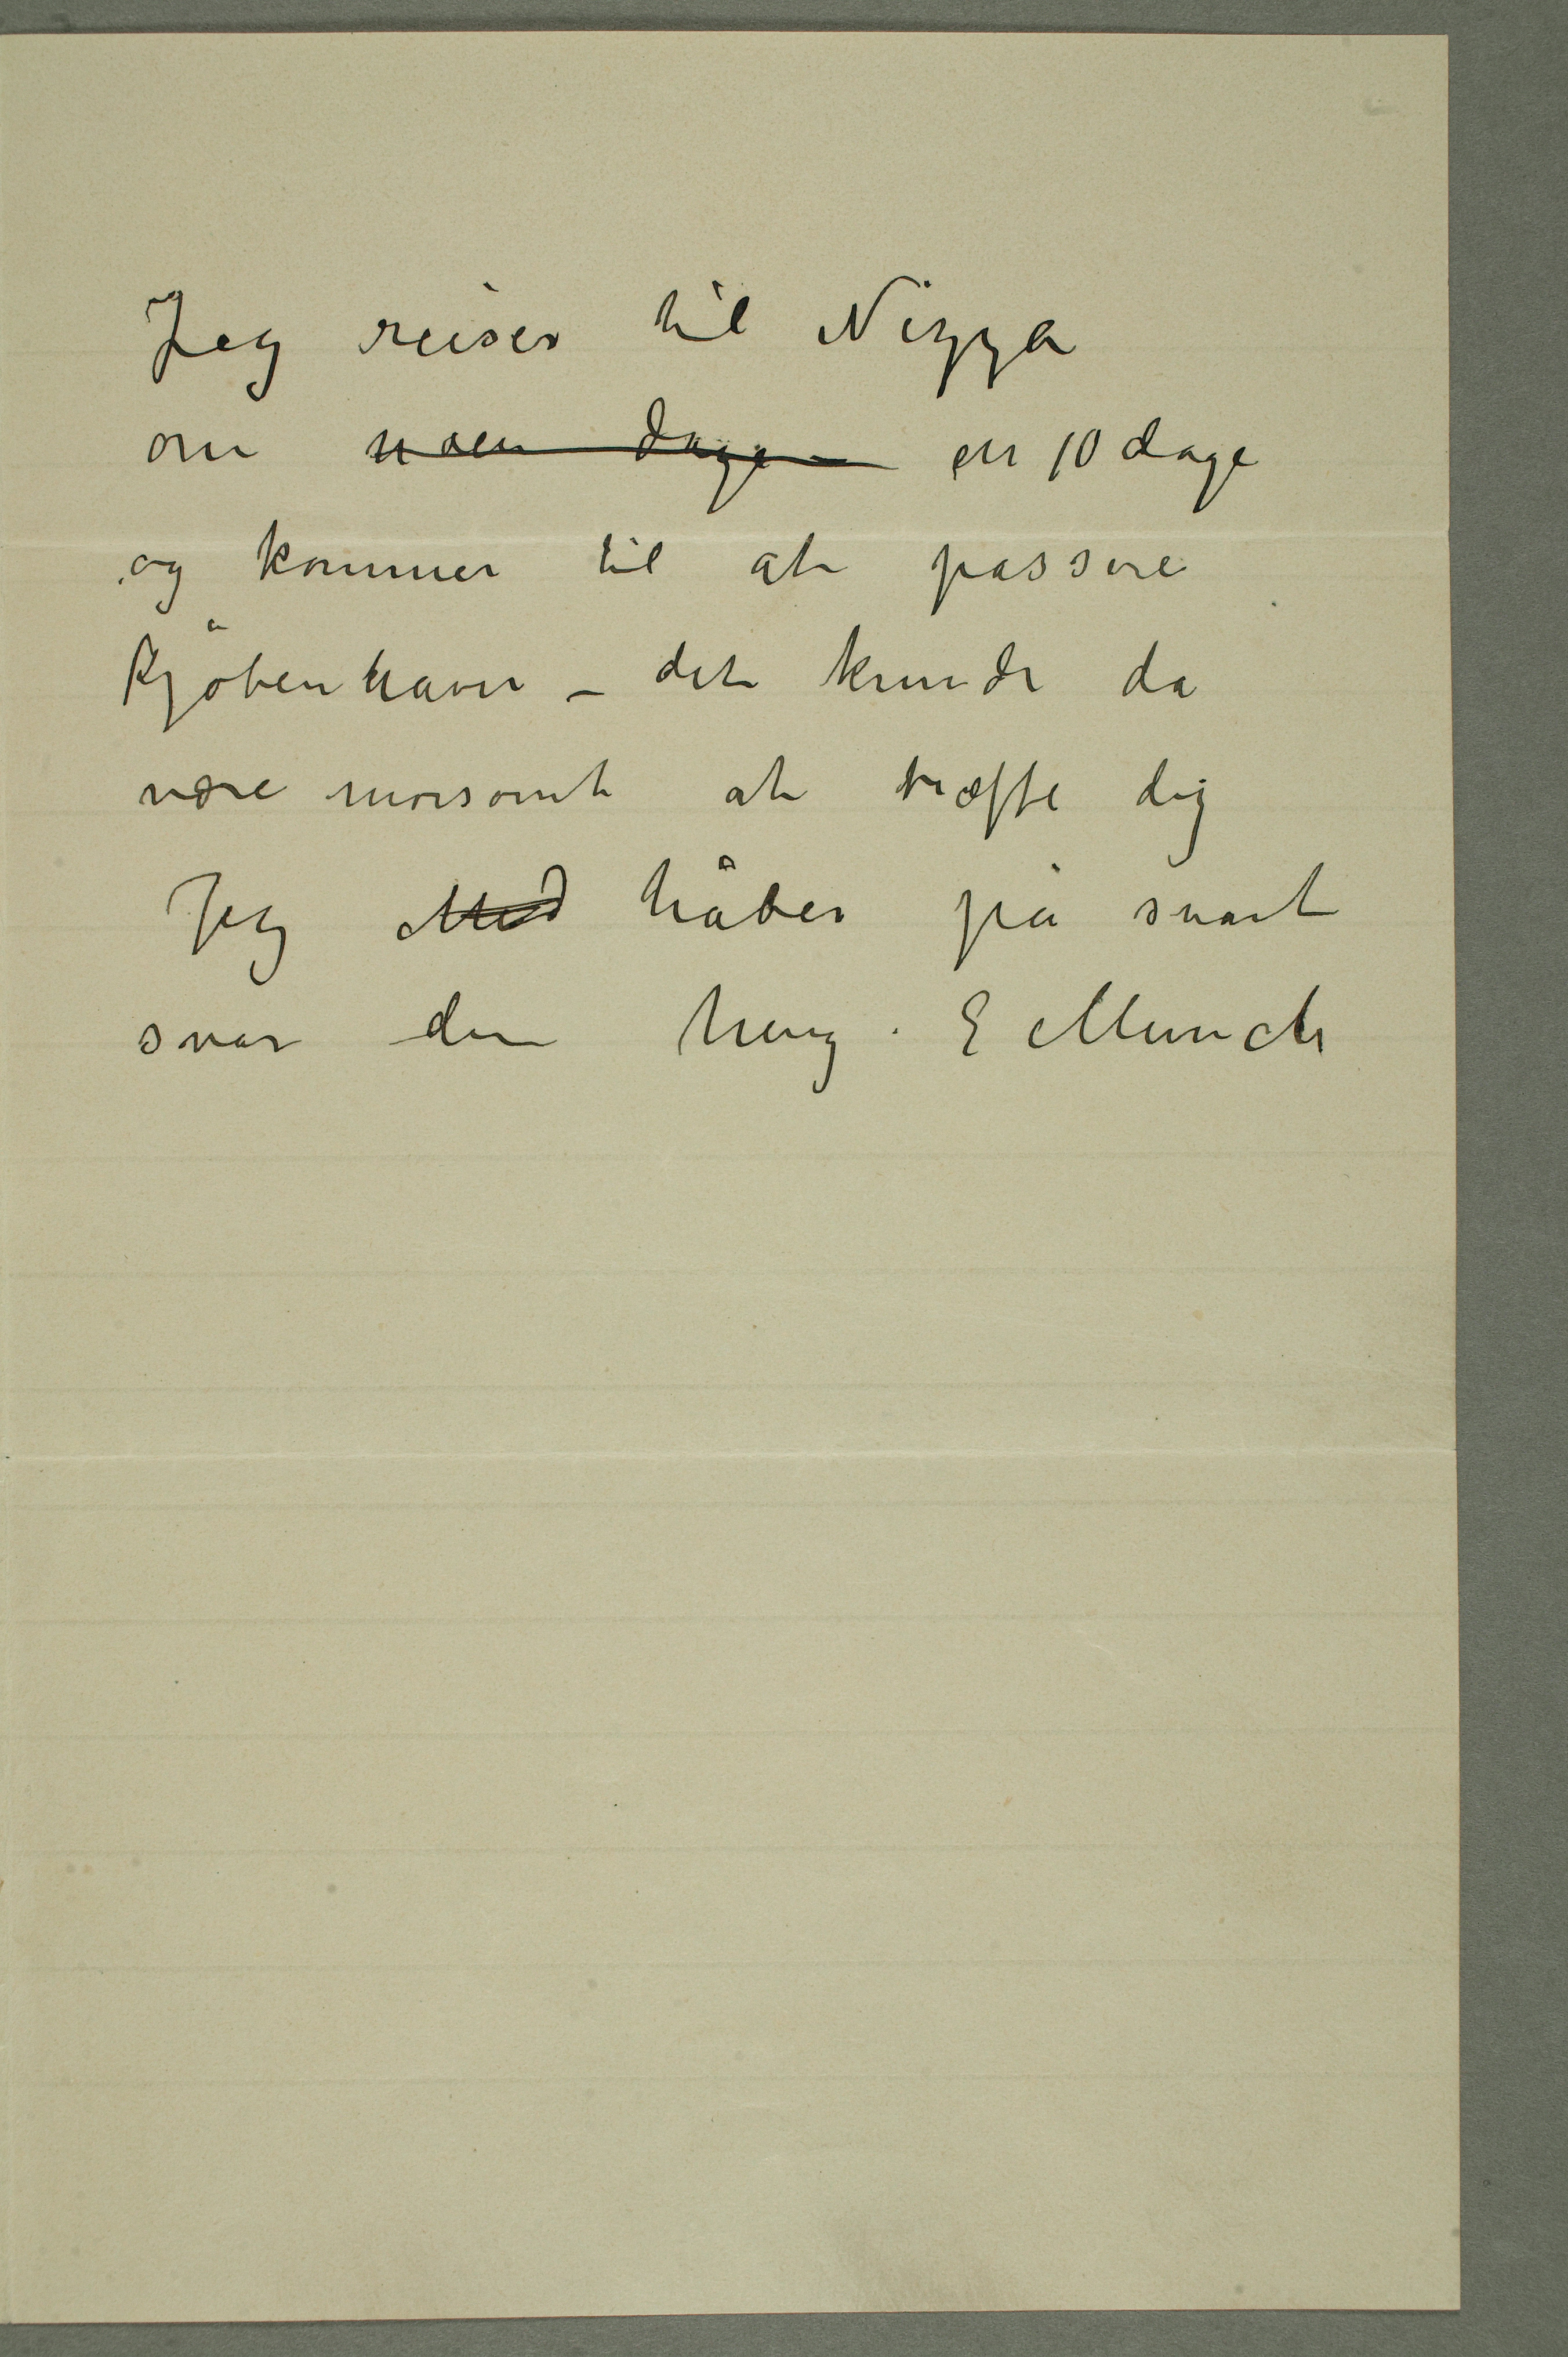 Jeg reiser til Nizza
om noen dage – en 10 dage
og kommer til at passere
Kjöbenhavn – det kunde da
være morsomt at træffe dig
Jeg Med håber på snart
svar din heng. E Munch